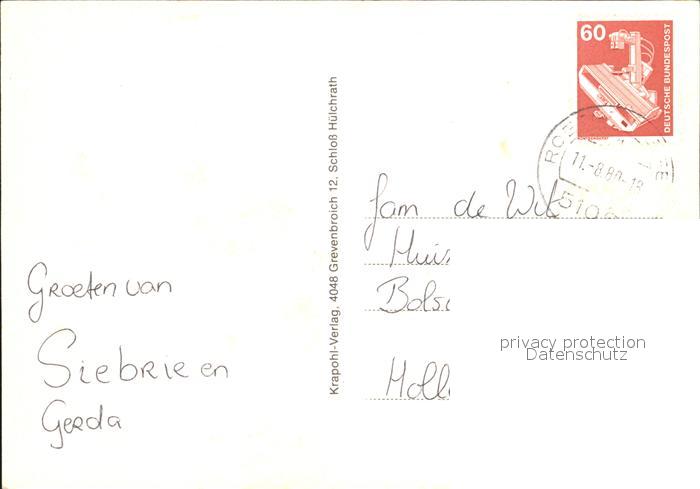 60
DEUTSCHE BUNDESPOST
11.-8.80-18
510
Krapohl-Verlag, 4048 Grevenbroich 12, Schloß Hülchrath
Groeten van
Siebrie en
Gerda
Fam de Wit
Huis
Bols
Holl
privacy protection
Datenschutz